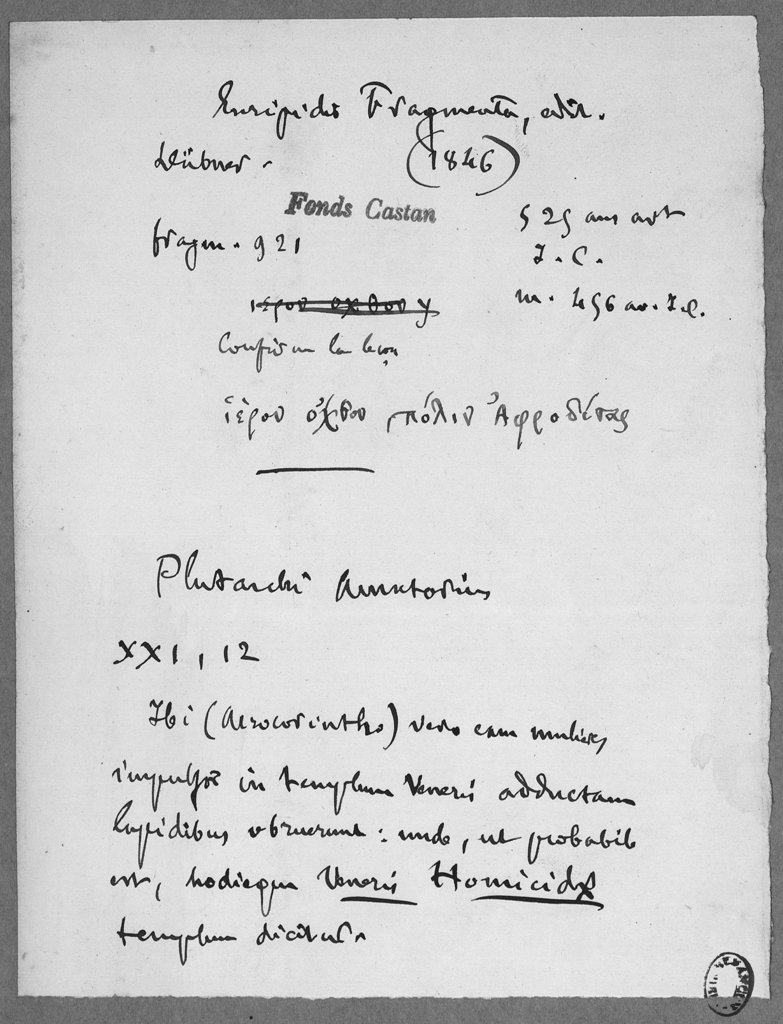 Euripidis Fragmenta, edit.
Dübner. (1846)
Fonds Castan
fragm. 921
525 ans avt
J. C.
m. 456 av. J. C.
ιερον οχθον
Confirme la leçon
ἱερὸν ὄχθον πόλιν Ἀφροδίτας
Plutarchi Amatorius
XXI, 12
Ibi (Acrocorintho) vero eam mulieres
in templum Veneris adductam
lapidibus obruerunt: unde, ut probabile
est, hodieque Veneris Homicidæ
templum dicitur.